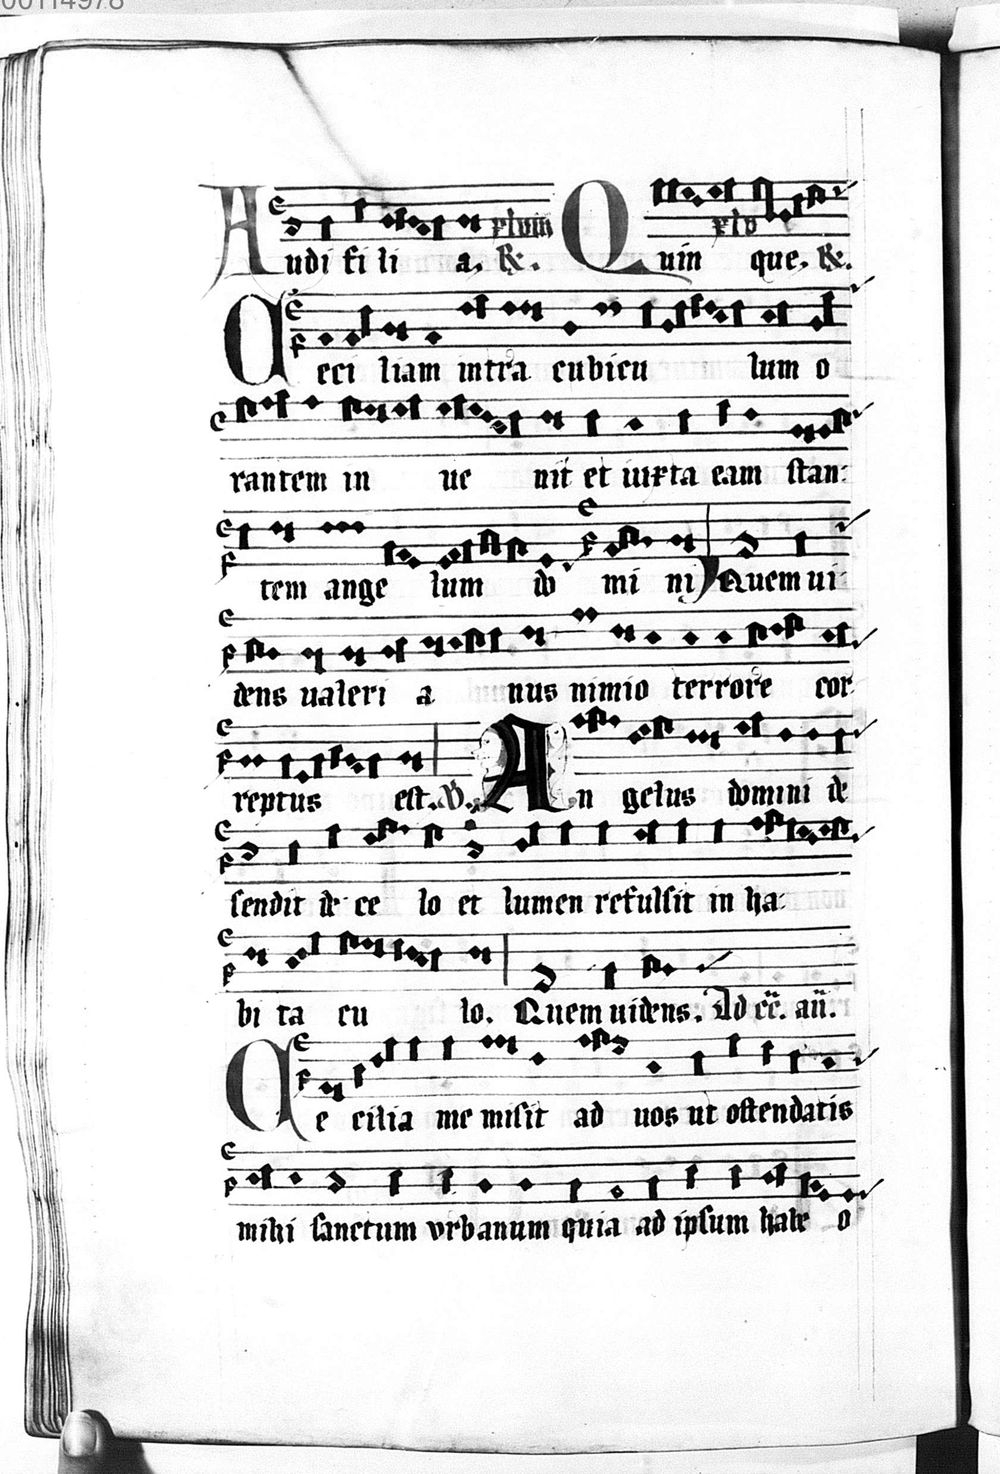 00114978
Audi fi li a. &. xlviij Quin que. &. xlv
Ceci liam intra cubicu lum o
rantem in ue nit et iuxta eam stan-
tem ange lum do mi nj Quem ui-
dens ualeri a nus nimio terrore cor-
reptus est. V. An gelus domini de
sendit de ce lo et lumen refulsit in ha-
bi ta cu lo. Quem uidens. Ad cc. an.
Ce cilia me misit ad uos ut ostendatis
mihi sanctum vrbanum quia ad ipsum habe o